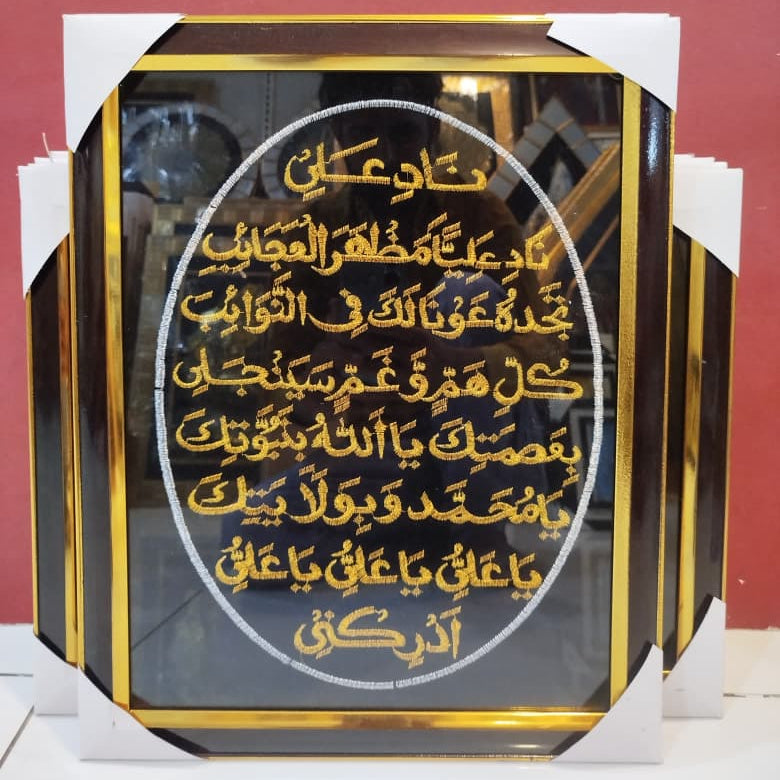 نَادِ عَلِيْ
نَادِ عَلِيًّا مَظْهَرَ الْعَجَائِبِ
تَجِدْهُ عَوْنًا لَكَ فِي النَّوَائِبِ
كُلِّ هَمٍّ وَّ غَمٍّ سَيَنْجَلِي
بِعَصَمَتِكَ يَا أَللهُ بِنَبُوَّتِكَ
يَا مُحَمَّد وَبِوَلَايَتِكَ
يَا عَلِيُّ يَا عَلِيُّ يَا عَلِيُّ
اَدْرِكْنِيْ